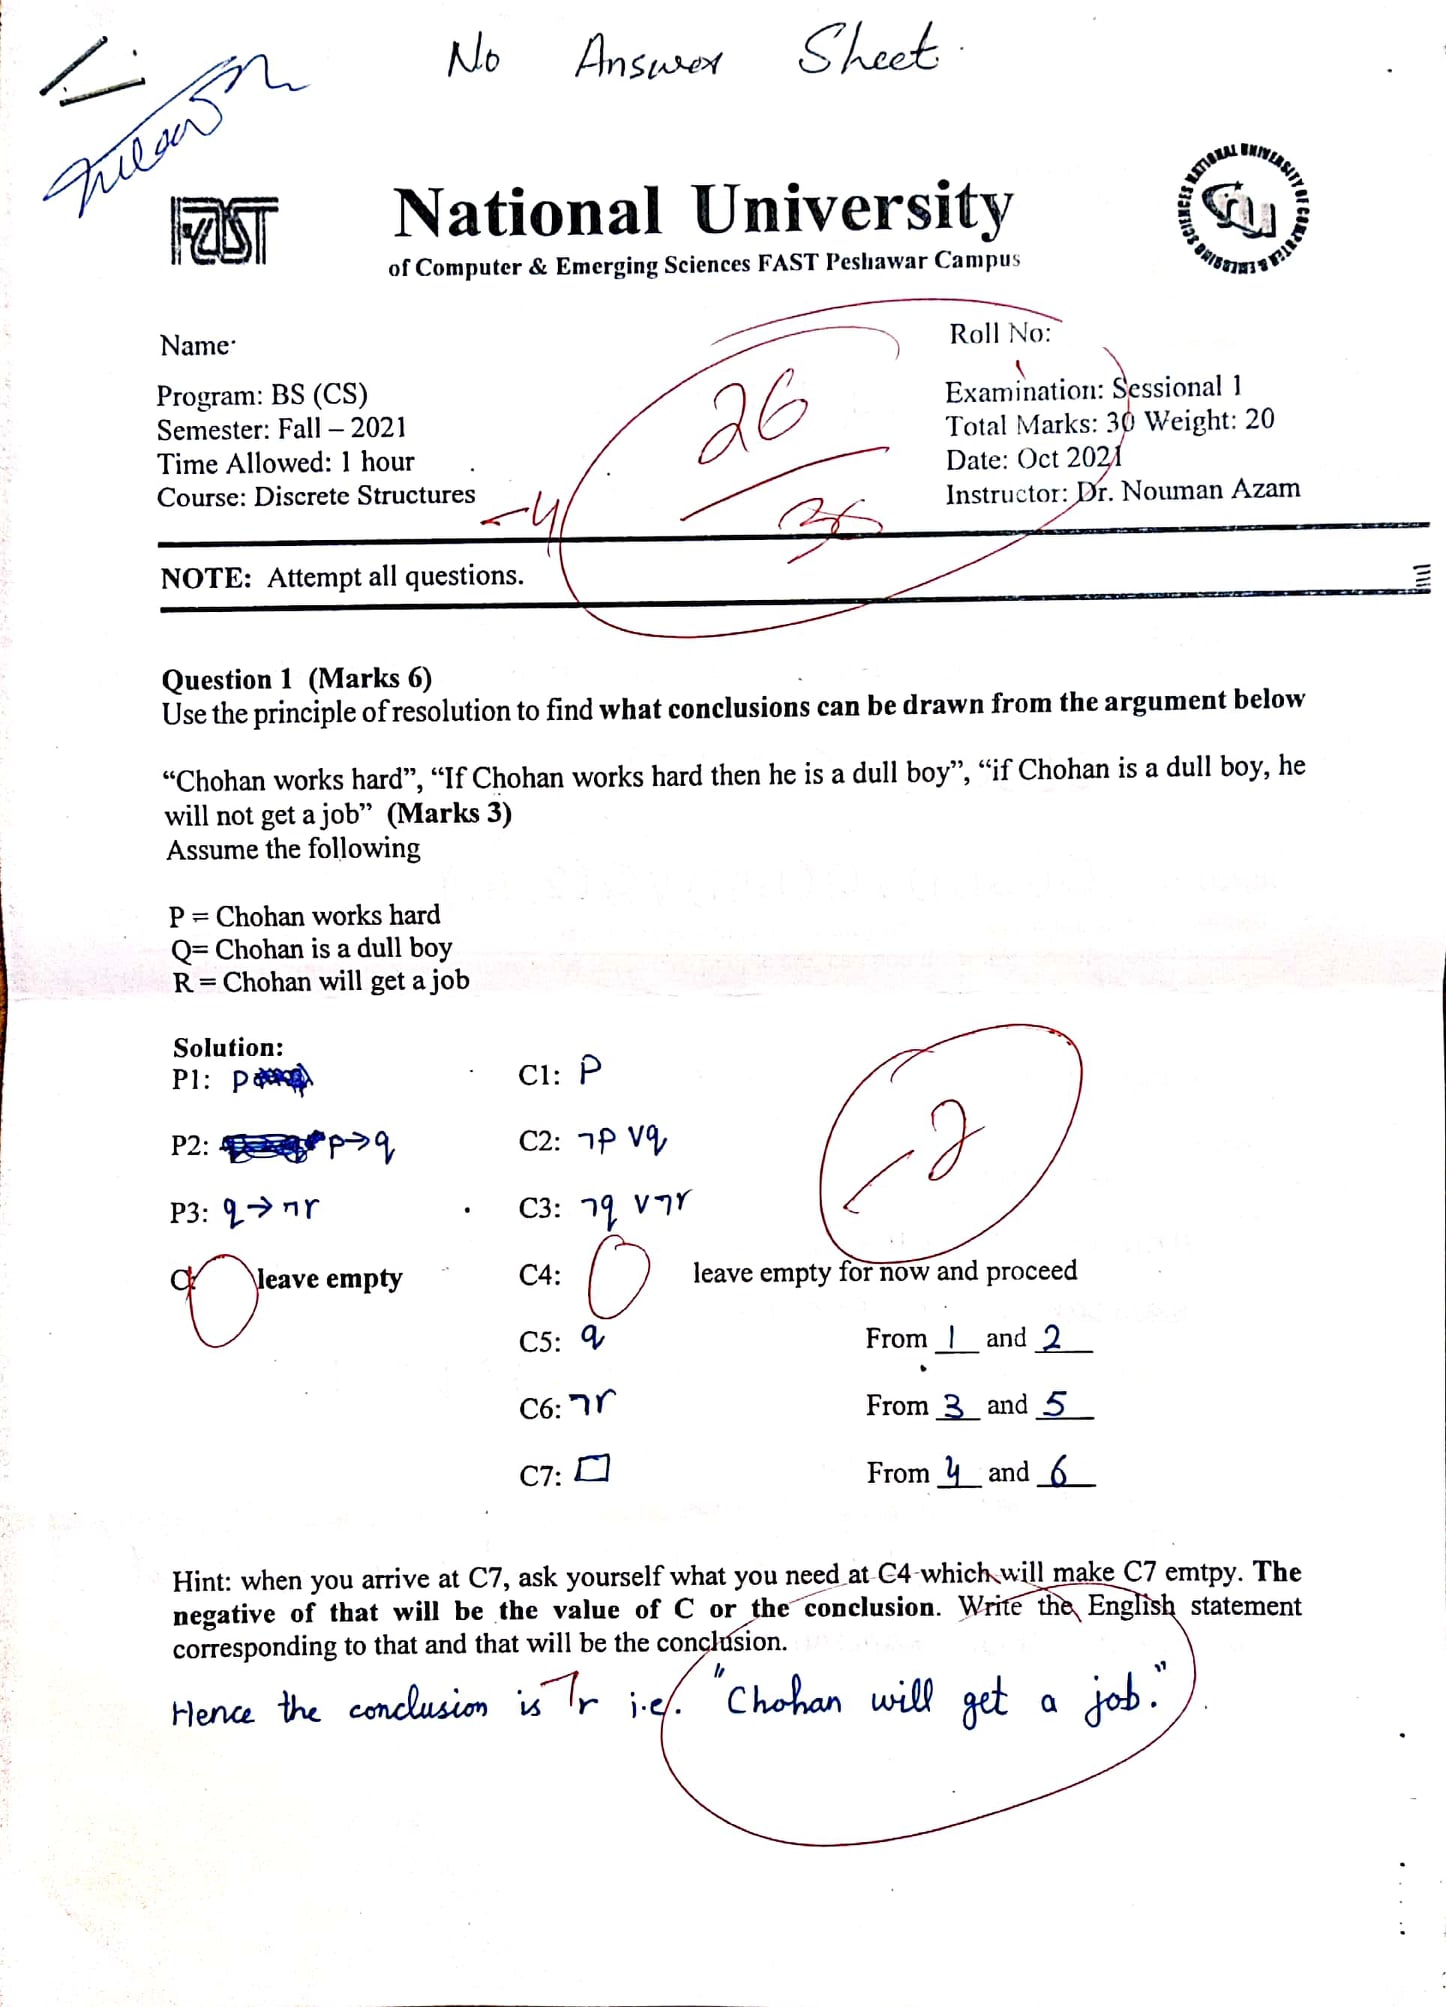 No Answer Sheet.
FAST
National University
of Computer & Emerging Sciences FAST Peshawar Campus
Name:
Roll No:
Program: BS (CS)
Examination: Sessional 1
Semester: Fall – 2021
Total Marks: 30 Weight: 20
Time Allowed: 1 hour
Date: Oct 2021
Course: Discrete Structures
Instructor: Dr. Nouman Azam
26
-4
NOTE: Attempt all questions.
Question 1 (Marks 6)
Use the principle of resolution to find what conclusions can be drawn from the argument below
“Chohan works hard”, “If Chohan works hard then he is a dull boy”, “if Chohan is a dull boy, he
will not get a job” (Marks 3)
Assume the following
P = Chohan works hard
Q= Chohan is a dull boy
R = Chohan will get a job
Solution:
P1: p
C1: P
P2: p→q
C2: ¬p ∨q
P3: q→¬r
C3: ¬q ∨¬r
-2
C: leave empty
C4: leave empty for now and proceed
C5: q From 1 and 2
C6: ¬r From 3 and 5
C7: □ From 4 and 6
Hint: when you arrive at C7, ask yourself what you need at C4 which will make C7 emtpy. The
negative of that will be the value of C or the conclusion. Write the English statement
corresponding to that and that will be the conclusion.
Hence the conclusion is ¬r i.e. "Chohan will get a job."